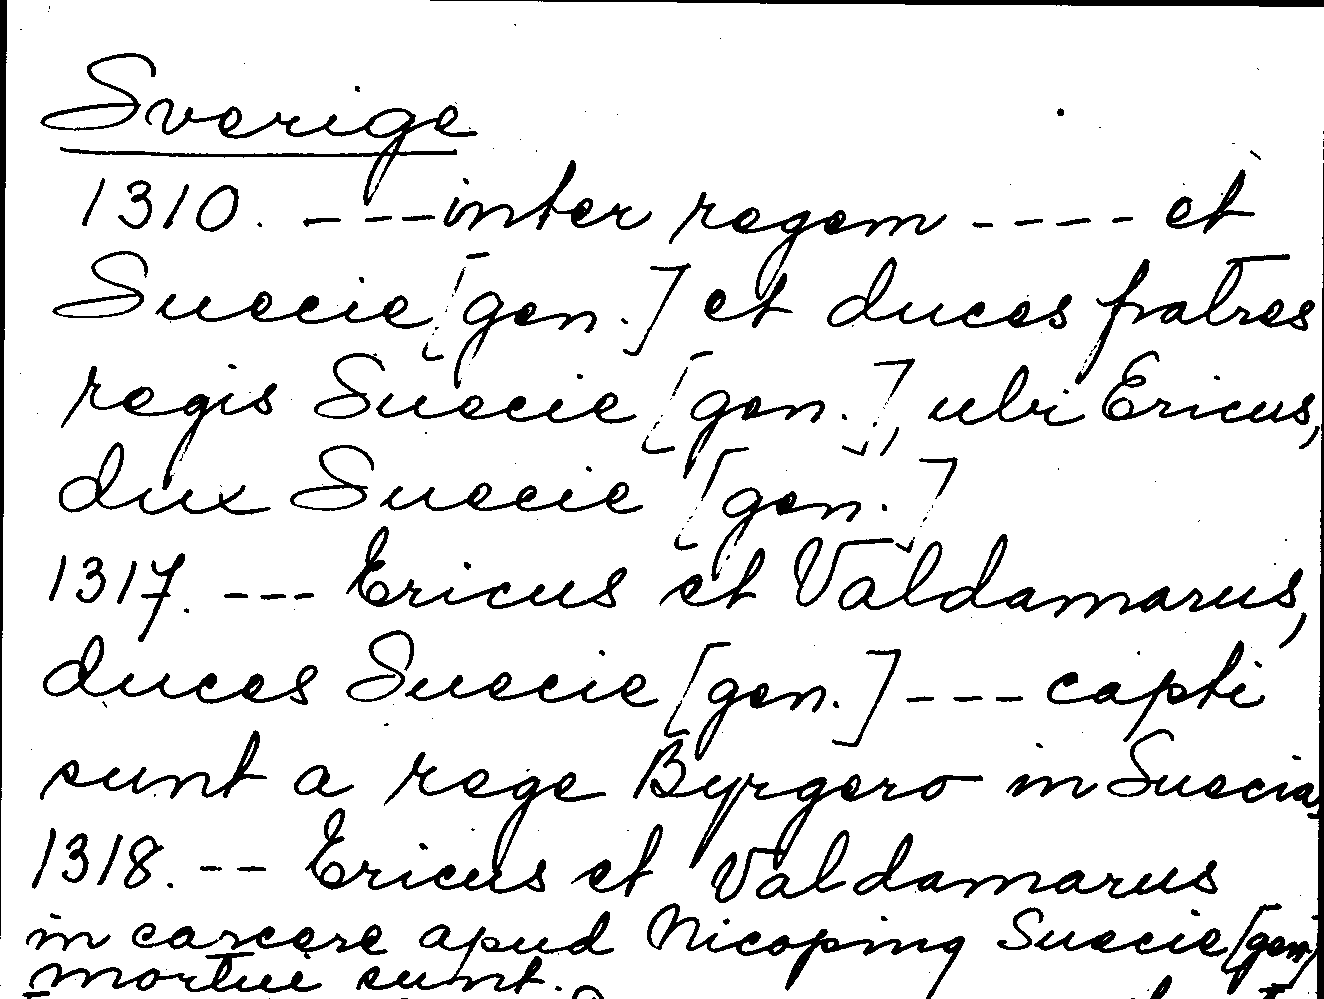 Sverige
1310. ---inter regem ---- et
Suecie [gen.] et duces fratres
regis Suecie [gen.], ubi Ericus,
dux Suecie [gen.]
1317. --- Ericus et Valdamarus,
duces Suecie [gen.] --- capti
sunt a rege Byrgero in Suecia,
1318. -- Ericus et Valdamarus
in carcere apud Nicoping Suecie [gen.]
mortui sunt.